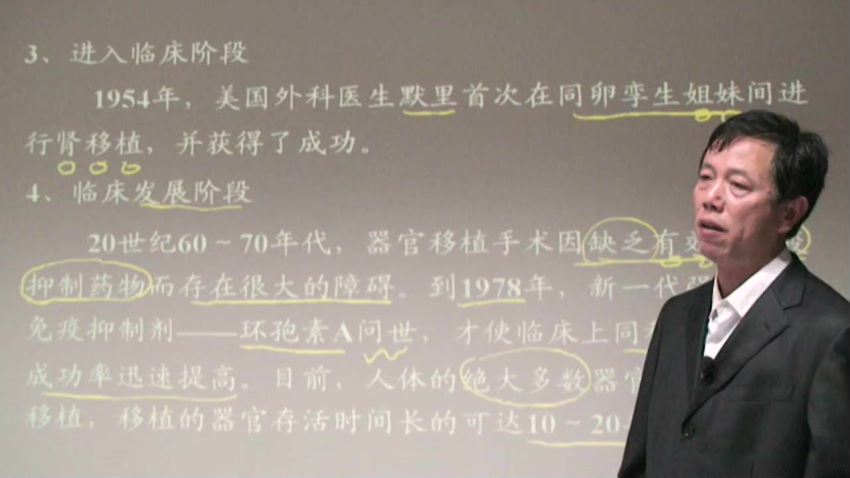 3、进入临床阶段
1954年，美国外科医生默里首次在同卵孪生姐妹间进
行肾移植，并获得了成功。
4、临床发展阶段
20世纪60～70年代，器官移植手术因缺乏有效
抑制药物而存在很大的障碍。到1978年，新一代
免疫抑制剂——环孢素A问世，才使临床上同
成功率迅速提高。目前，人体的绝大多数器官
移植，移植的器官存活时间长的可达10～20